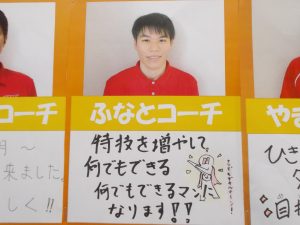 コーチ
ふなとコーチ
やま
特技を増やして
何でもできる
何でもできるマンに
なります!!
月 〜
来ました。
しく!!
ひき